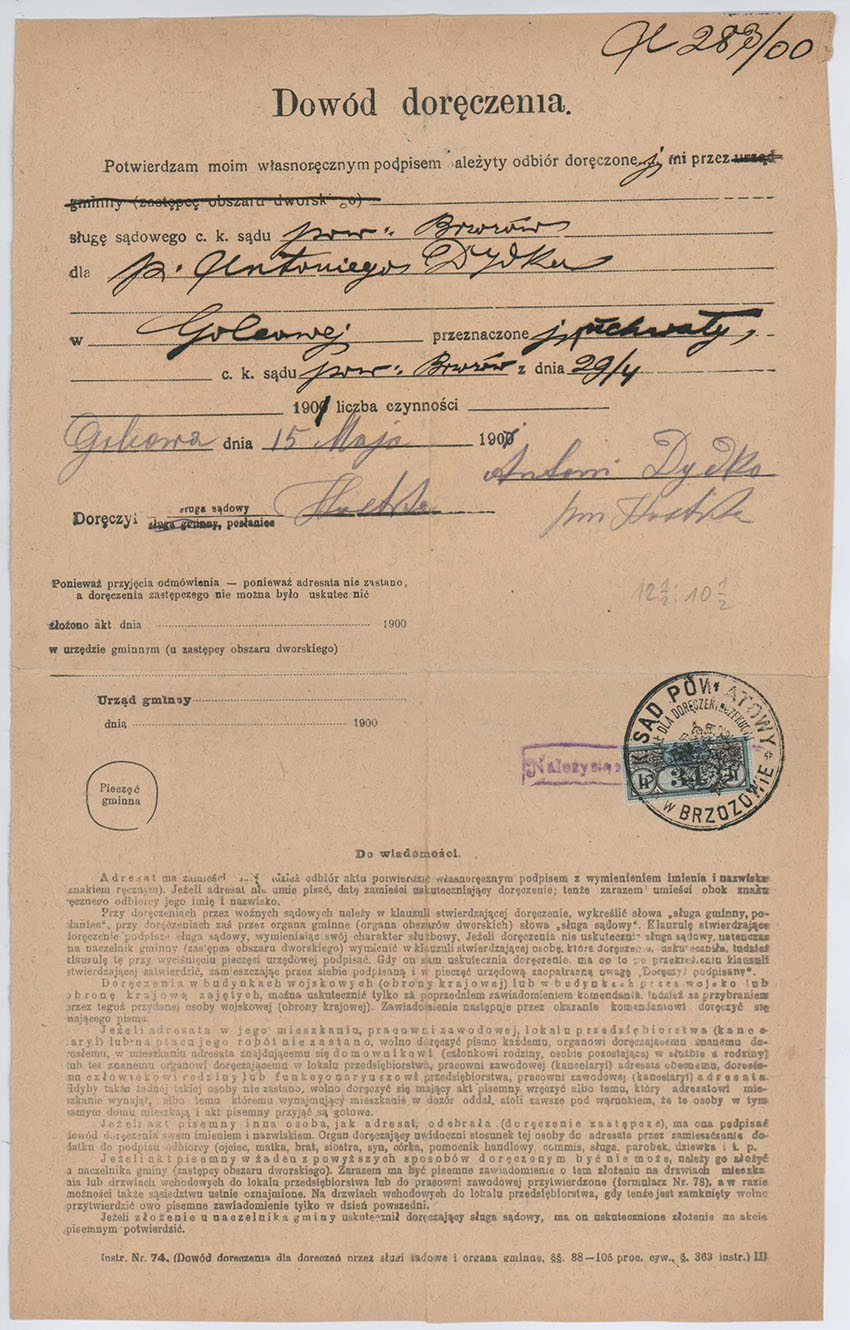 283/00
Dowód doręczenia.
Potwierdzam moim własnoręcznym podpisem należyty odbiór doręczonej mi przez urząd
gminny (zastępcę obszaru dworskiego)
sługę sądowego c. k. sądu pow. Brzozów
dla p. Antoniego Dydka
w Golcowej przeznaczonej uchwały,
c. k. sądu pow. Brzozów z dnia 29/4
1901 liczba czynności
Golcowa dnia 15 Maja 1901
Antoni Dydko
Doręczył sługa sądowy
sługa gminny, posłaniec
Ponieważ przyjęcia odmówienia — ponieważ adresata nie zastano,
a doręczenia zastępczego nie można było uskutecznić
złożono akt dnia 1900
w urzędzie gminnym (u zastępcy obszaru dworskiego)
12 1/2 : 10 1/2
Urząd gminny
dnia 1900
K. SĄD POWIATOWY
W BRZOZOWIE
Należy się
34
Pieczęć
gminna
Do wiadomości.
Adresat ma zamieścić odbiór aktu potwierdzić własnoręcznym podpisem z wymienieniem imienia i nazwiska
(znakiem ręcznym). Jeżeli adresat nie umie pisać, datę zamieści uskuteczniający doręczenie; tenże zarazem umieści obok znaku
ręcznego odbiorcy jego imię i nazwisko.
Przy doręczeniach przez woźnych sądowych należy w klauzuli stwierdzającej doręczenie, wykreślić słowa „sługa gminny, po-
słaniec“, przy doręczeniach zaś przez organa gminne (organa obszarów dworskich) słowa „sługa sądowy“. Klauzulę stwierdzającą
doręczenie podpisze sługa sądowy, wymieniając swój charakter służbowy. Jeżeli doręczenia nie uskutecznił sługa sądowy, natenczas
ma naczelnik gminy (zastępca obszaru dworskiego) wymienić w klauzuli stwierdzającej osobę, która doręczenie uskuteczniła, tudzież
klauzulę tę przy wyciśnięciu pieczęci urzędowej podpisać. Gdy on sam uskutecznia doręczenie, ma co to po przekreśleniu klauzuli
stwierdzającej zatwierdzić, zamieszczając przez siebie podpisaną i w pieczęć urzędową zaopatrzoną uwagę „Doręczył podpisany“.
Doręczenia w budynkach wojskowych (obrony krajowej) lub w budynkach przez wojsko lub
obronę krajową zajętych, można uskutecznić tylko za poprzedniem zawiadomieniem komendanta, tudzież za przybraniem
przez tegoż przydanej osoby wojskowej (obrony krajowej). Zawiadomienie następuje przez okazanie komendantowi doręczyć się
mającego pisma.
Jeżeli adresata w jego mieszkaniu, pracowni zawodowej, lokalu przedsiębiorstwa (kance-
laryi) lub na placu jego robót nie zastano, wolno doręczyć pismo każdemu, organowi doręczającemu znanemu do-
rosłemu, w mieszkaniu adresata znajdującemu się domownikowi (członkowi rodziny, osobie pozostającej w służbie a rodziny)
lub też znanemu organowi doręczającemu w lokalu przedsiębiorstwa, pracowni zawodowej (kancelaryi) adresata obecnemu, dorosłe-
mu członkowi rodziny lub funkcyonaryuszowi przedsiębiorstwa, pracowni zawodowej, (kancelaryi) adresata.
Gdyby także żadnej takiej osoby nie zastano, wolno doręczyć się mający akt pisemny wręczyć albo temu, który adresatowi mie-
szkanie wynajął, albo temu któremu wynajmujący mieszkanie w dozór oddał, atoli zawsze pod warunkiem, że te osoby w tym
samym domu mieszkają i akt pisemny przyjąć są gotowe.
Jeżeli akt pisemny inna osoba, jak adresat, odebrała (doręczenie zastępcze), ma ona podpisać
dowód doręczenia swem imieniem i nazwiskiem. Organ doręczający uwidoczni stosunek tej osoby do adresata przez zamieszczenie do-
datku do podpisu odbiorcy (ojciec, matka, brat, siostra, syn, córka, pomocnik handlowy, commis, sługa, parobek, dziewka i t. p.
Jeżeli akt pisemny w żaden z powyższych sposobów doręczonym być nie może, należy go złożyć
u naczelnika gminy (zastępcy obszaru dworskiego). Zarazem ma być pisemne zawiadomienie o tem złożeniu na drzwiach mieszka-
nia lub drzwiach wchodowych do lokalu przedsiębiorstwa lub do pracowni zawodowej przytwierdzone (formularz Nr. 78), a w razie
możności także sąsiedztwu ustnie oznajmione. Na drzwiach wchodowych do lokalu przedsiębiorstwa, gdy tenże jest zamknięty wolno
przytwierdzić owo pisemne zawiadomienie tylko w dzień powszedni.
Jeżeli złożenie u naczelnika gminy uskutecznił doręczający sługa sądowy, ma on uskutecznione złożenie na akcie
pisemnym potwierdzić.
Instr. Nr. 74. (Dowód doręczenia dla doręczeń przez sługi sądowe i organa gminne, §§. 88—105 proc. cyw., §. 363 instr.) III